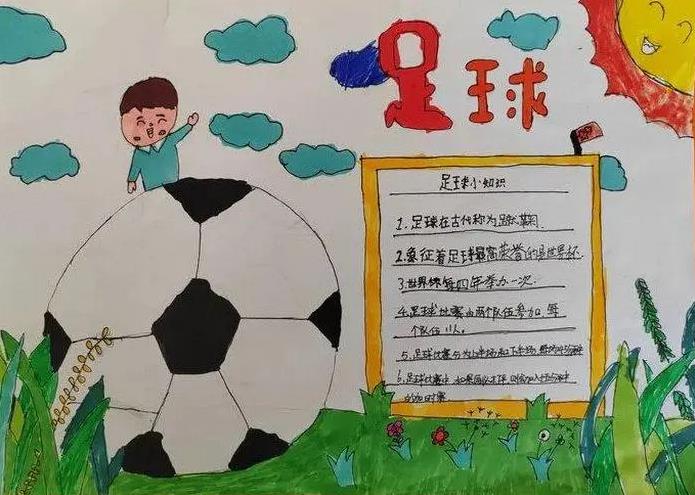 足球
足球小知识
1.足球在古代称为蹴鞠.
2.象征着足球最高荣誉的是世界杯.
3.世界杯每四年举办一次.
4.足球比赛由两个队伍参加,每
个队伍11人。
5.足球比赛分为上半场和下半场
6.足球比赛中
的加时赛